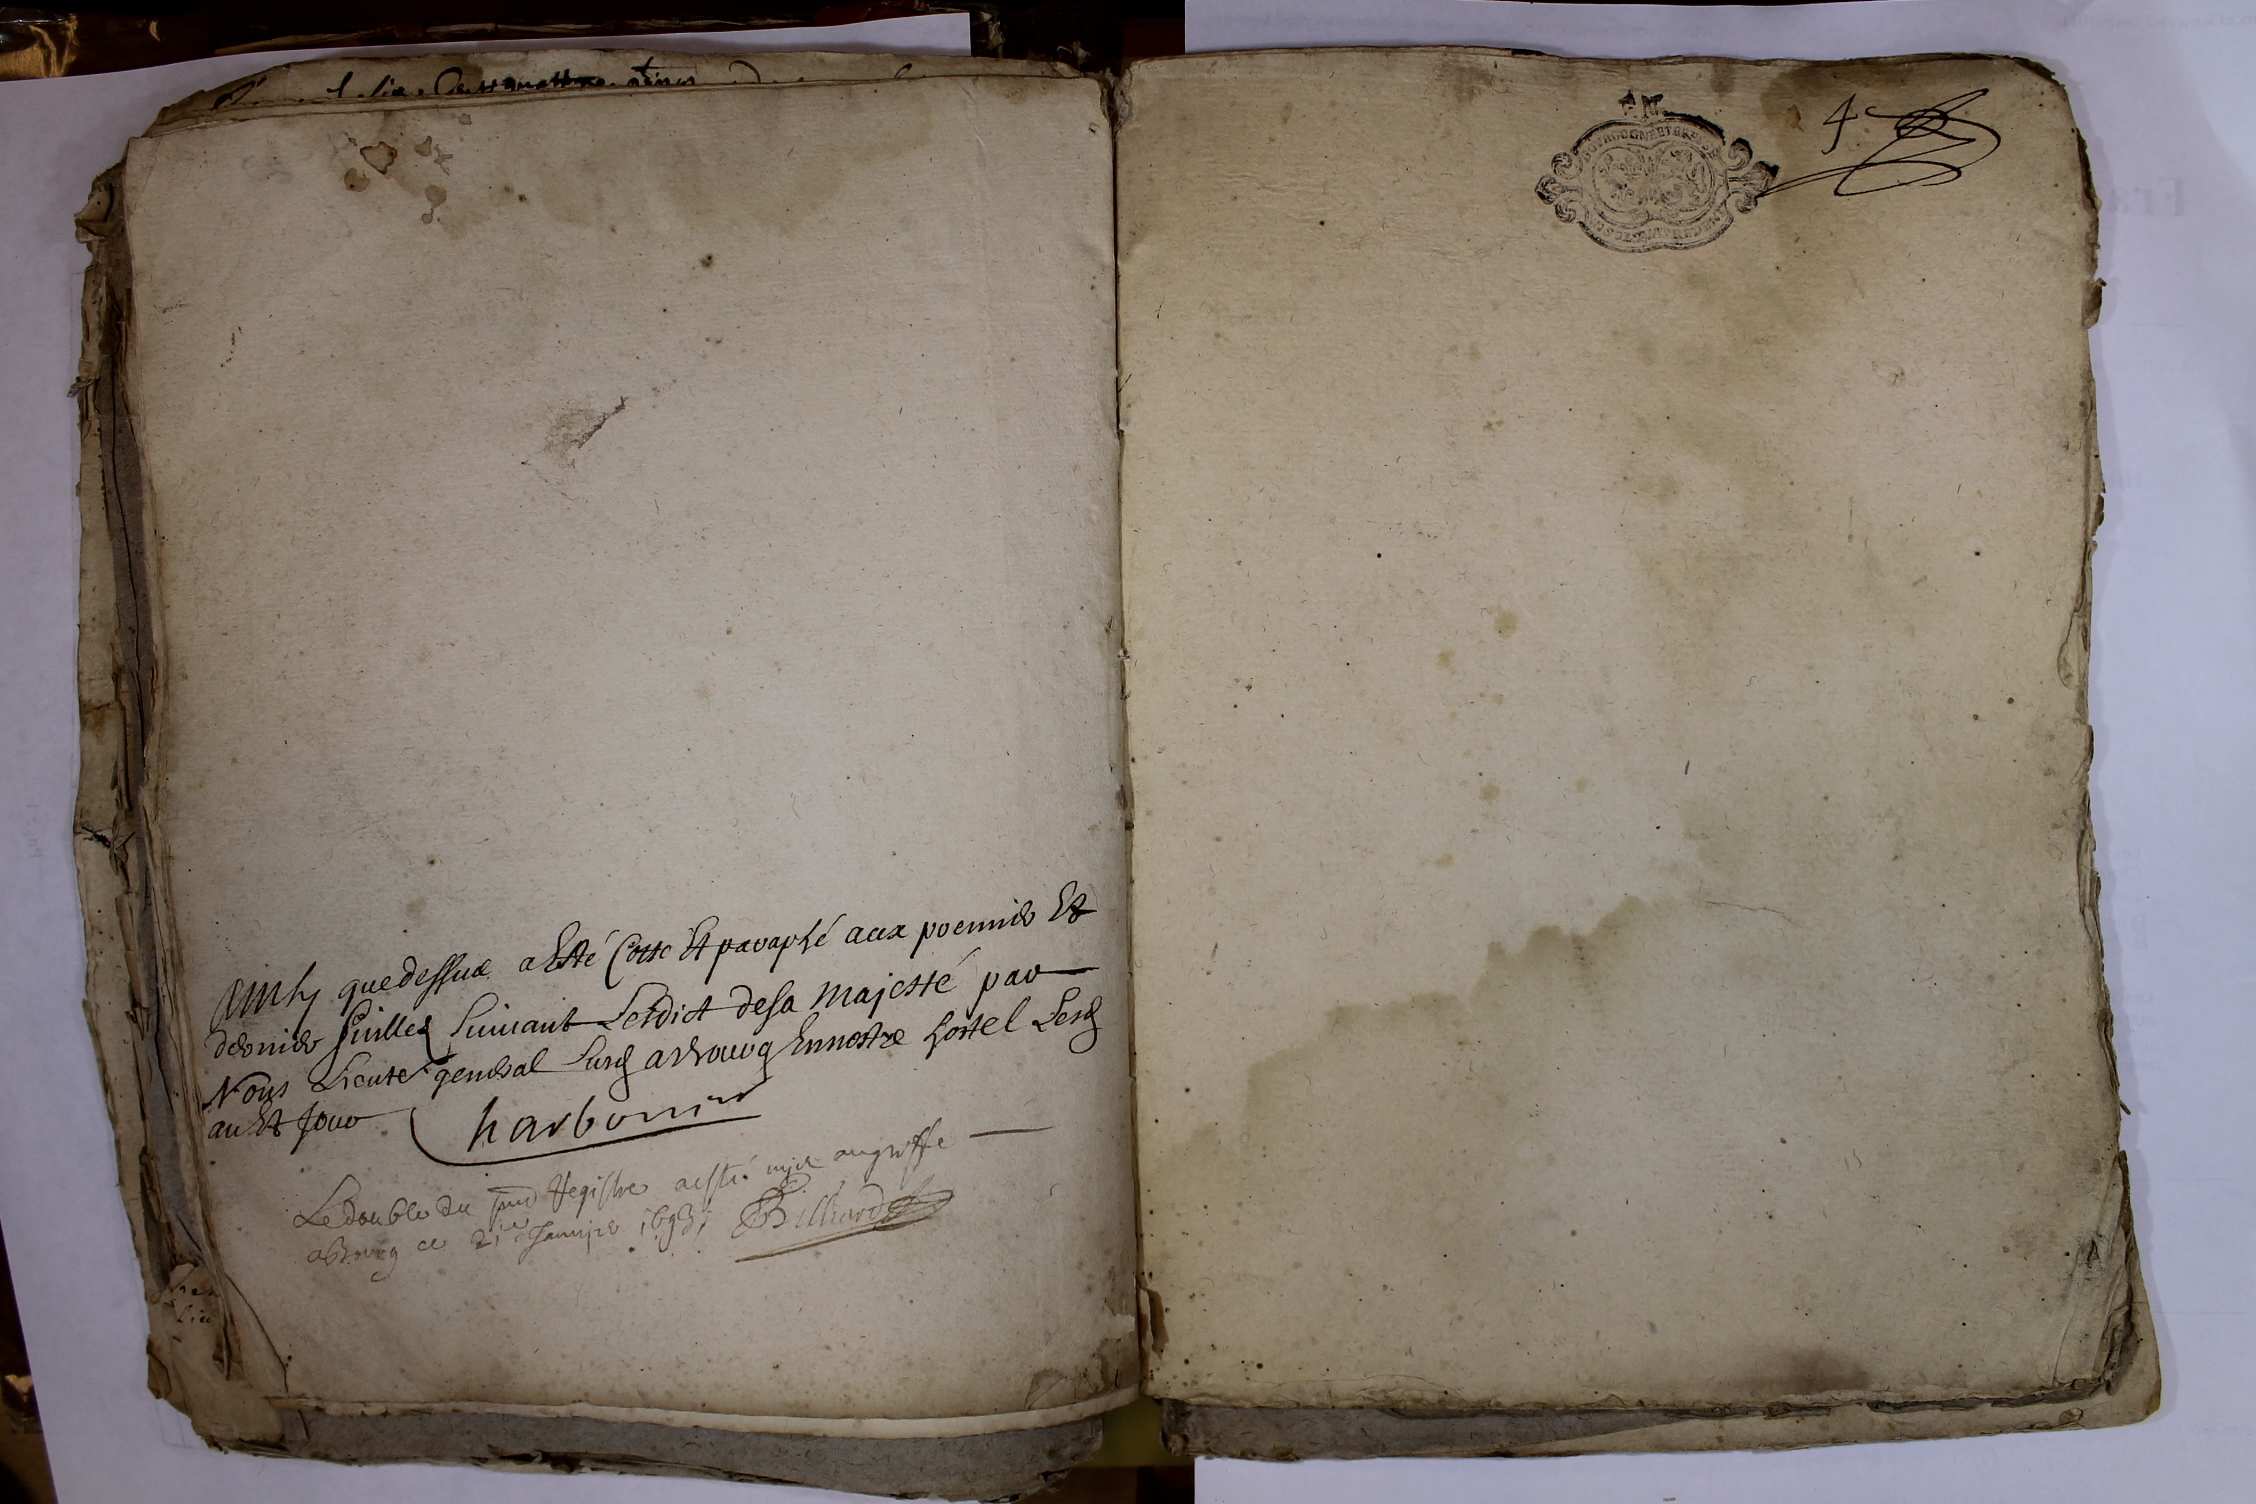 Ainsy que dessus a Esté Cotté Et paraphé aux premier Et
dernier feuillet suivant L'Edict de sa Majesté par
Nous Lieutet general Susd a Bourg En nostre hostel Lesd
an Et Jour Charbonnier
Le double du pnt Registre a esté mis au greffe
a Bourg ce 21e Janvier 1693 Billiard
4